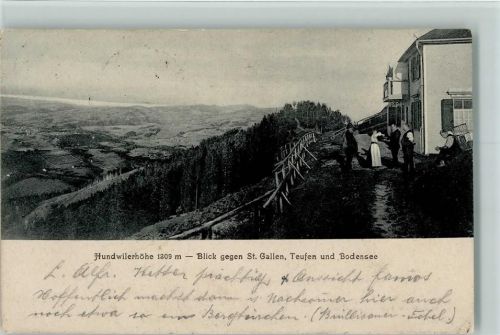 Hundwilerhöhe 1309 m — Blick gegen St. Gallen, Teufen und Bodensee
L. Alfr. Wetter prächtig & Aussicht famos
Hoffentlich machst dann im Nachsommer hier auch
noch etwa so ein Bergkirchen.